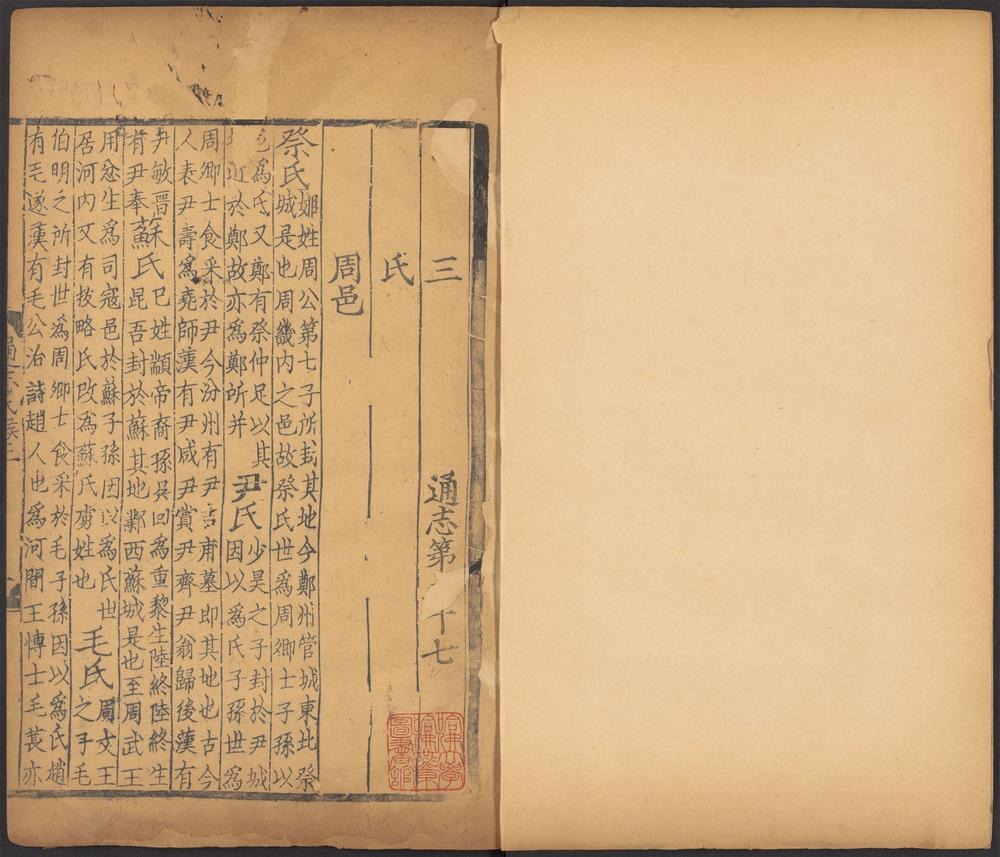 三 通志第十七
氏
周邑
祭氏姬姓周公第七子所封其地今鄭州管城東北祭
城是也周畿內之邑故祭氏世爲周卿士子孫以
邑爲氏又鄭有祭仲足以其
近於鄭故亦爲鄭所并
尹氏少昊之子封於尹城
因以爲氏子孫世爲
周卿士食采於尹今汾州有尹吉甫墓即其地也古今
人表尹壽爲堯師漢有尹咸尹賞尹齊尹翁歸後漢有
尹敏晋
有尹奉
蘇氏已姓顓帝裔孫吳回爲重黎生陸終陸終生
昆吾封於蘇其地鄴西蘇城是也至周武王
用忿生爲司寇邑於蘇子孫因以爲氏世
居河內又有拔略氏改爲蘇氏虜姓也
毛氏周文王
之子毛
伯明之所封世爲周卿士食采於毛子孫因以爲氏趙
有毛遂漢有毛公治詩趙人也爲河間王博士毛萇亦